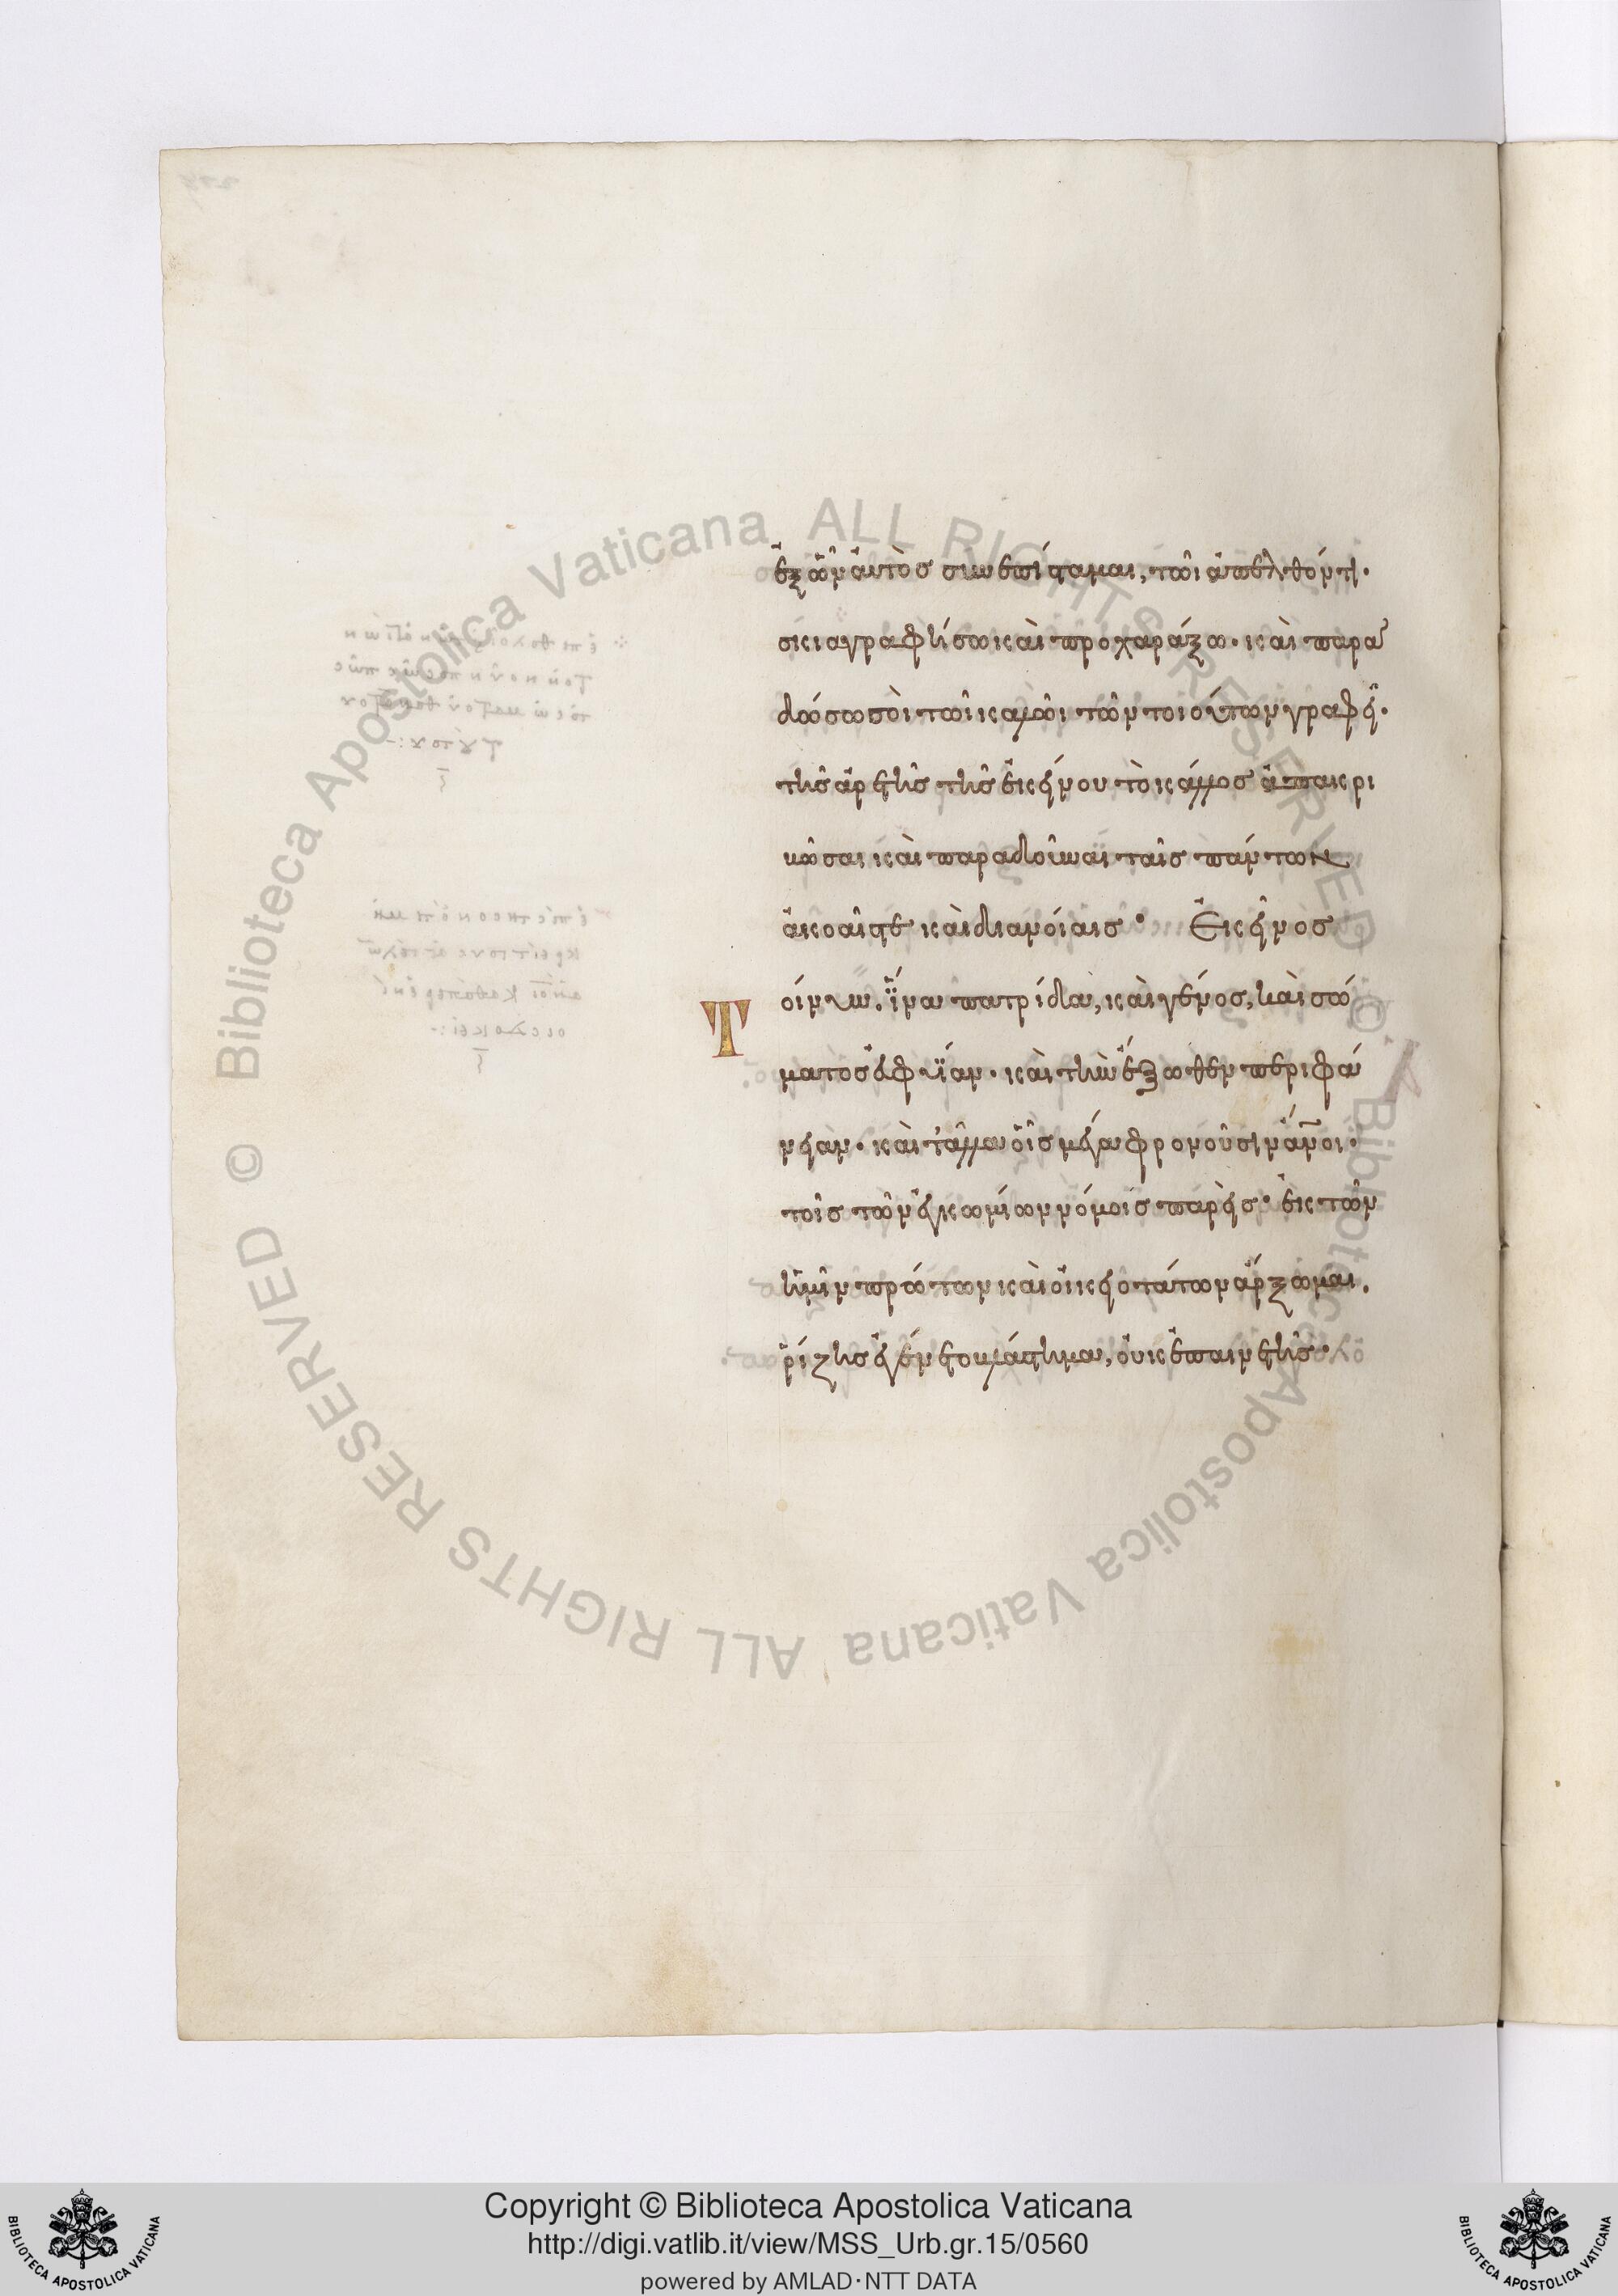 ἐξ ὧν αὐτὸς συνεπίσταμαι, τῶι ἀπελθόντι·
σκιαγραφήσω καὶ προχαράξω· καὶ παρα
δώσω σοὶ τῶι καλῶι τῶν τοιούτων γραφεῖ·
τῆς ἀρετῆς τῆς ἐκείνου τὸ κάλλος ἀπακρι
βῶσαι καὶ παραδοῦναι ταῖς πάντων
ἀκοαῖς τε καὶ διανοίαις· Ἐκεῖνος
τοίνυν, ἵνα πατρίδα, καὶ γένος, καὶ σώ
ματος εὐφυΐαν· καὶ τὴν ἔξωθεν περιφά
νειαν· καὶ τἄλλα οἷς μέγα φρονοῦσιν ἄνοι·
τοῖς τῶν ἐγκωμίων νόμοις παρεὶς· ἐκ τῶν
ἡμῖν πρώτων καὶ οἰκειοτάτων ἄρξωμαι.
ῥίζης ἐγένετο βλάστημα, οὐκ ἐπαινετῆς·
Copyright © Biblioteca Apostolica Vaticana
http://digi.vatlib.it/view/MSS_Urb.gr.15/0560
powered by AMLAD·NTT DATA
BIBLIOTECA APOSTOLICA VATICANA
BIBLIOTECA APOSTOLICA VATICANA
© Biblioteca Apostolica Vaticana ALL RIGHTS RESERVED
© Biblioteca Apostolica Vaticana ALL RIGHTS RESERVED